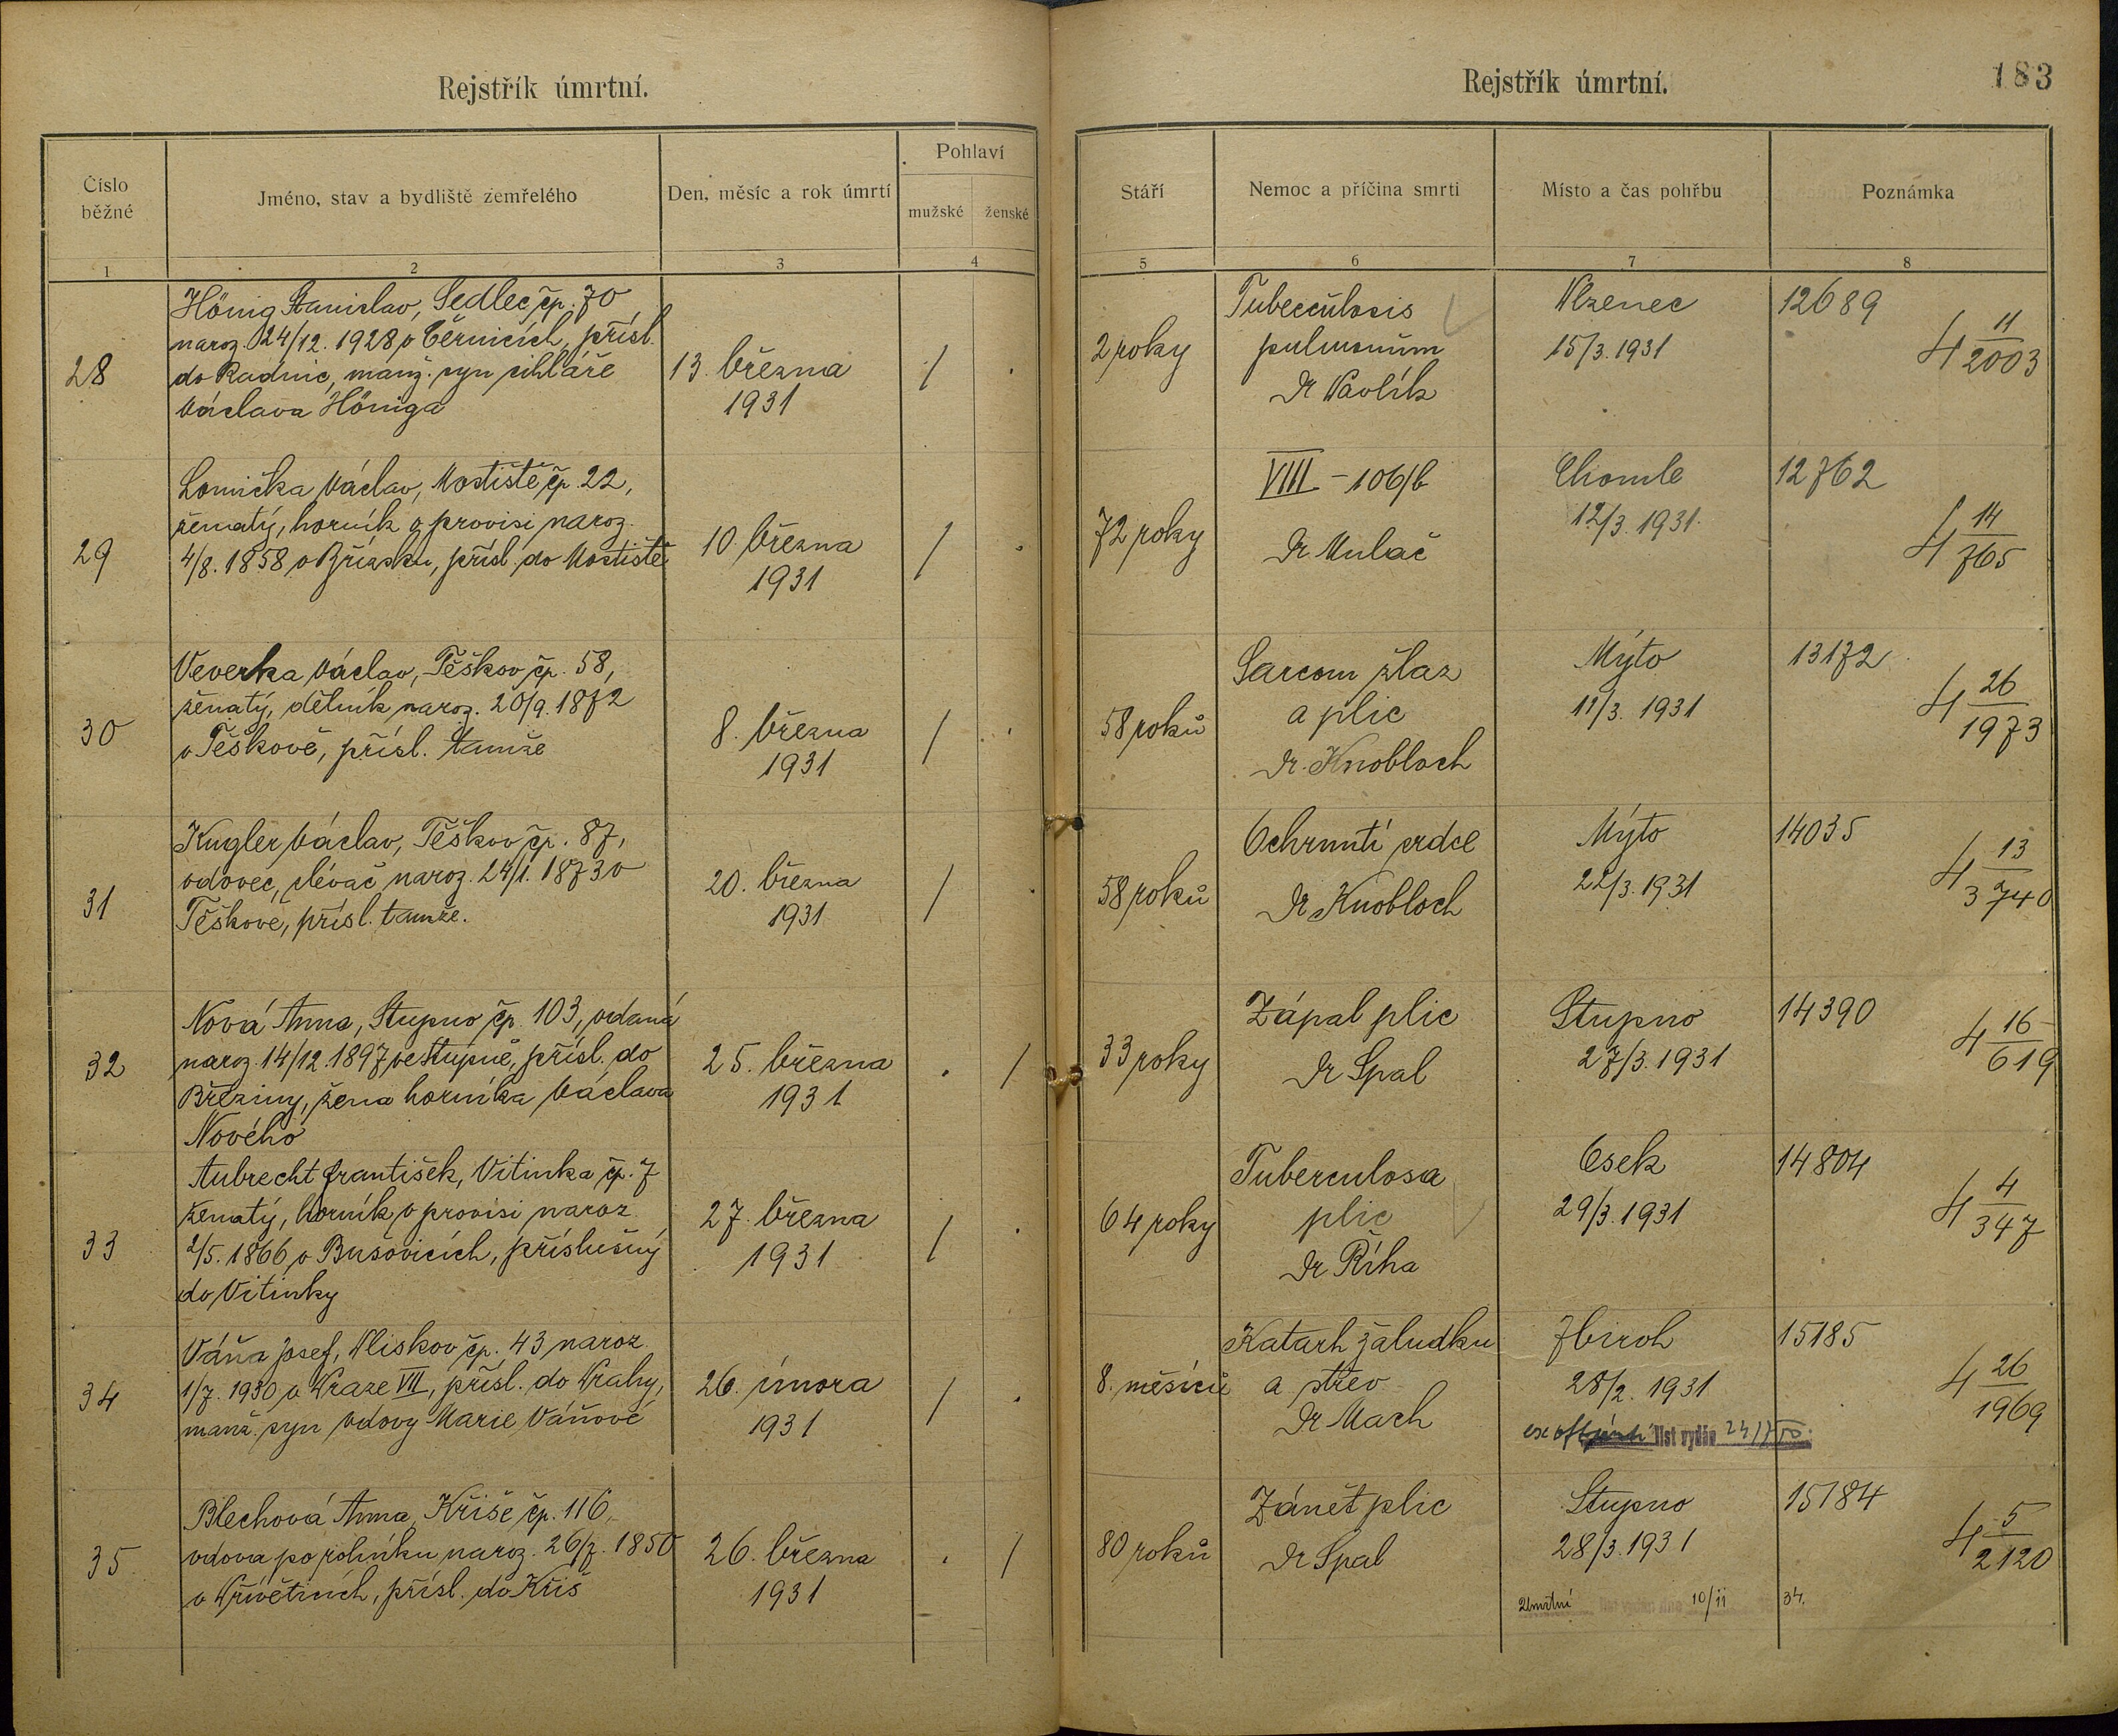 Rejstřík úmrtní.
Číslo běžné
Jméno, stav a bydliště zemřelého
Den, měsíc a rok úmrtí
Pohlaví
mužské
ženské
1
2
3
4
28
Hönig Stanislav, Sedlec čp. 70
naroz. 24/12. 1928 v Černicích, přísl.
do Radnic, manž. syn cihláře
Václava Höniga
13. března
1931
/
.
29
Lomička Václav, Mostiště čp. 22,
ženatý, horník v provisi naroz.
4/8. 1858 v Břízsku, přísl. do Mostiště
10. března
1931
/
.
30
Veverka Václav, Těškov čp. 58,
ženatý, dělník naroz. 20/9. 1872
v Těškově, přísl. tamže
8. března
1931
/
.
31
Kugler Václav, Těškov čp. 87,
vdovec, slévač naroz. 24/1. 1873 v
Těškově, přísl. tamže.
20. března
1931
/
.
32
Nová Anna, Stupno čp. 103, vdaná
naroz. 14/12. 1897 ve Stupně, přísl. do
Březiny, žena horníka Václava
Nového
25. března
1931
.
/
33
Aubrecht František, Vitinka čp. 7
ženatý, horník v provisi naroz.
2/5. 1866 v Bušovicích, příslušný
do Vitinky
27. března
1931
/
.
34
Váňa Josef, Pliskov čp. 43 naroz.
1/7. 1930 v Praze VII, přísl. do Prahy,
manž. syn vdovy Marie Váňové
26. února
1931
/
.
35
Blechová Anna, Kříše čp. 116,
vdova po rolníku naroz. 26/7. 1850
v Přívětících, přísl. do Kříš
26. března
1931
.
/
Rejstřík úmrtní.
183
Stáří
Nemoc a příčina smrti
Místo a čas pohřbu
Poznámka
5
6
7
8
2 roky
Tuberculosis
pulmonum
Dr Pavlík
Plzenec
15/3. 1931
12689
4 11/2003
72 roky
VIII - 106/b
Dr. Mulač
Chomle
12/3. 1931.
12762
4 14/765
58 roků
Sarcom žlaz
a plic
Dr. Knobloch
Mýto
11/3. 1931
13172
4 26/1973
58 roků
Ochrnutí srdce
Dr Knobloch
Mýto
22/3. 1931
14035
4 13/3740
33 roky
Zápal plic
Dr Spal
Stupno
27/3. 1931
14390
4 16/619
64 roky
Tuberculosa
plic
Dr Říha
Osek
29/3. 1931
14804
4 4/347
8. měsíců
Katarh žaludku
a střev
Dr Mach
Zbiroh
28/2. 1931
ex off list vydán
15185
4 26/1969
80 roků
Zánět plic
Dr Spal
Stupno
28/3. 1931
Úmrtní list vydán dne 10/11 34.
15184
4 5/2120